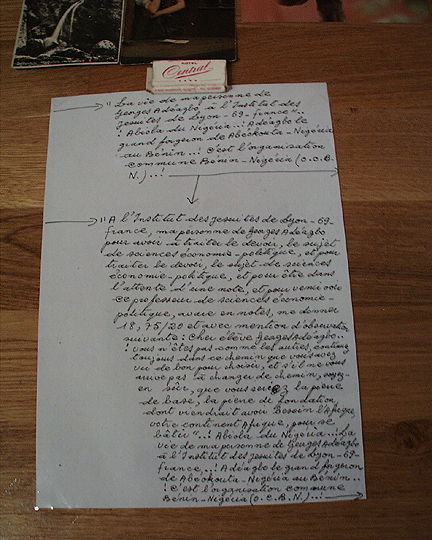 HOTEL
Central
"La vie de ma personne de
Georges Adéagbo à l'Institut des
Jesuites de Lyon-69-france"..
..! Abiola du Nigeria..! Adéagbo le
grand forgeron de Abéokouta-Nigéria
au Bénin..! C'est l'organisation
commune Bénin-Nigéria (O.C.B.
N.)...!
"A l'Institut des Jesuites de Lyon-69-
france, ma personne de Georges Adéagbo
pour avoir à traiter le devoir, le sujet
de sciences économie-politique, et pour
traiter le devoir, le sujet de sciences
économie-politique, et pour être dans
l'attente d'une note, et pour venir voir
ce professeur de sciences économie-
politique, avoir en notes, me donner
18,75/20 et avec mention d'observation
suivante: Cher élève Georges Adéagbo..
vous n'êtes pas comme les autres, continuez
toujours dans ce chemin que vous avez
vu de bon pour choisir, et s'il ne vous
arrive pas à changer de chemin, soyez-
en sûr, que vous serez la pierre
de base, la pierre de fondation
dont viendrait avoir Besoin l'Afrique
votre continent Afrique, pour se
bâtir"..! Abiola du Nigéria...La
vie de ma personne de Georges Adéagbo
à l'Institut des Jesuites de Lyon-69-
france...! Adéagbo le grand forgeron
de Abéokouta-Nigéria au Bénin..
! C'est l'organisation commune
Bénin-Nigéria (O.C.B.N.)...